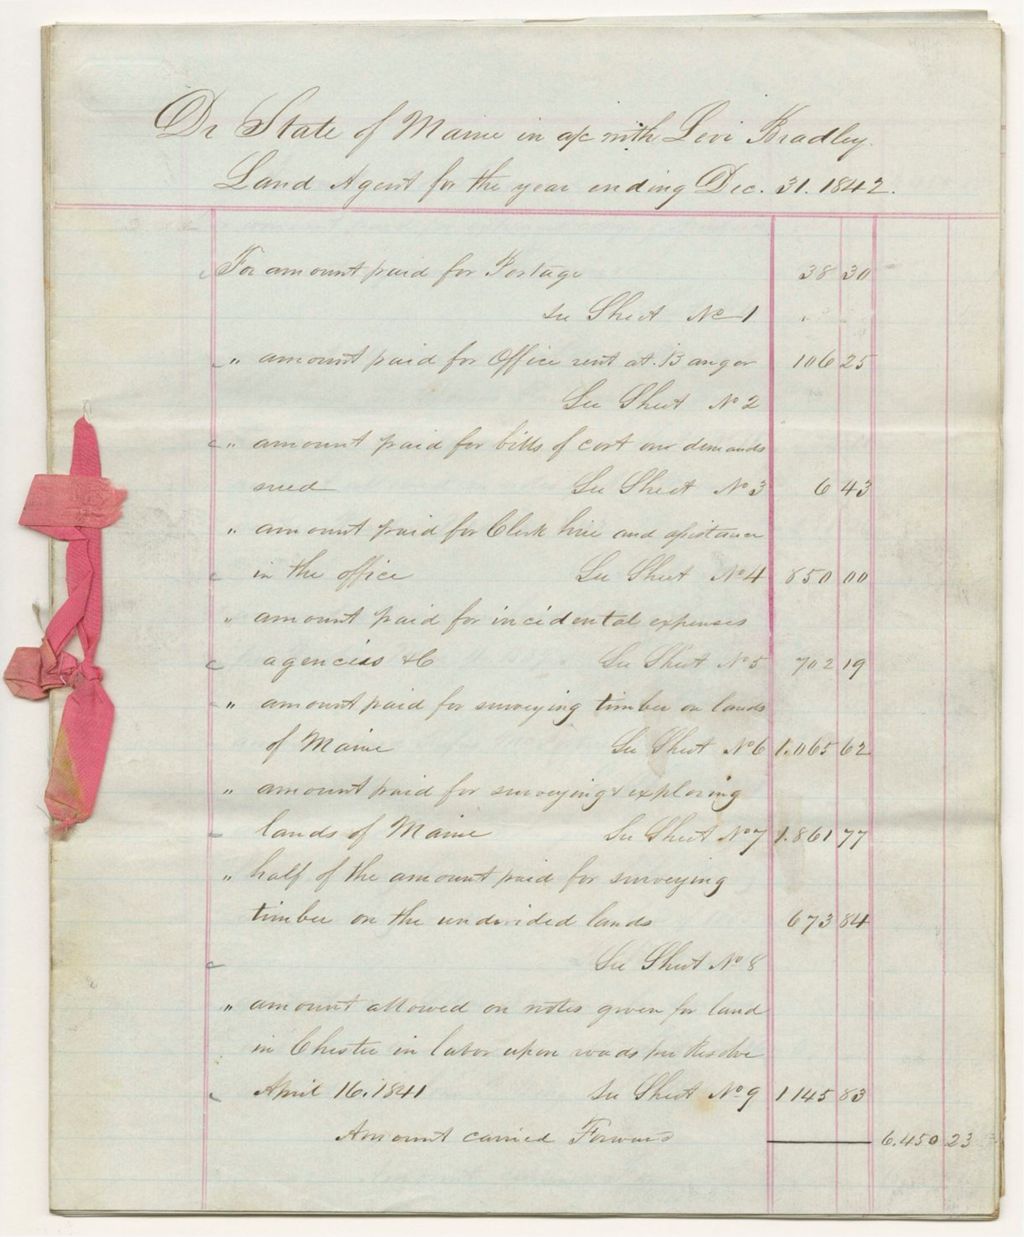 Dr State of Maine in a/c with Levi Bradley.
Land Agent for the year ending Dec. 31. 1842.
For amount paid for Postage 38 30
See Sheet No 1
" amount paid for Office rent at Bangor 106 25
See Sheet No 2
" amount paid for bills of cost on demands
sued See Sheet No 3 6 43
" amount paid for Clerk hire and assistance
in the office See Sheet No 4 850 00
" amount paid for incidental expenses
agencies &C See Sheet No 5 702 19
" amount paid for surveying timber on lands
of Maine See Sheet No 6 1.065 62
" amount paid for surveying & exploring
lands of Maine See Sheet No 7 1.861 77
" half of the amount paid for surveying
timber on the undivided lands 673 84
See Sheet No 8
" amount allowed on notes given for land
in Chester in labor upon roads per Resolve
April 16. 1841 See Sheet No 9 1 145 83
Amount carried Forward 6.450 23